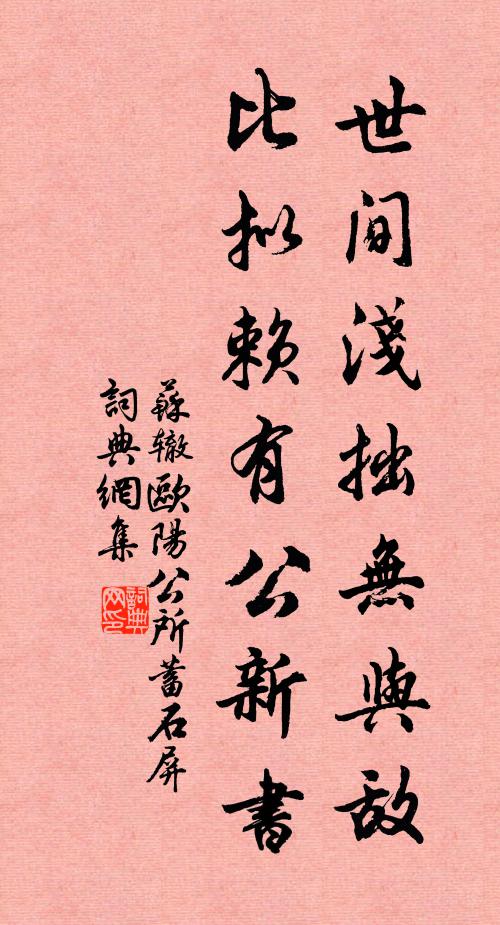 世間淺拙無與敵
比拟賴有公新書
蘇辙歐陽公所蓄石屏
詞典網集
詞典
网印